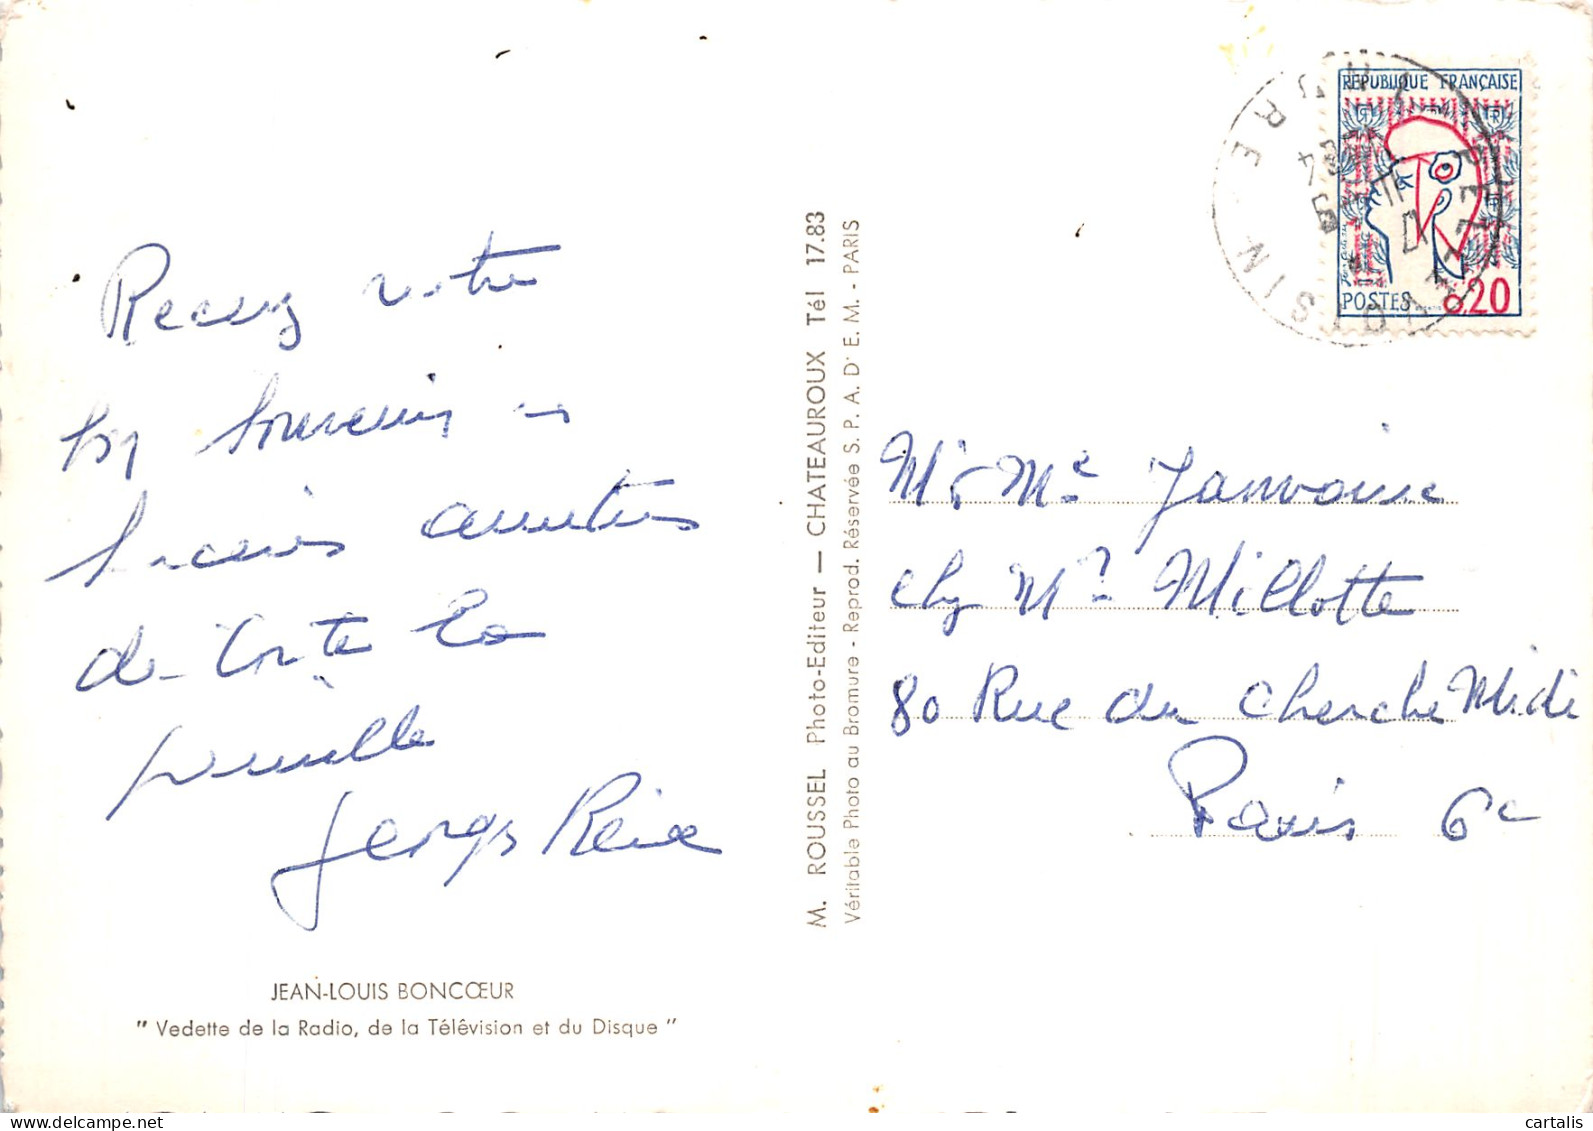 Recevez votre
bon souvenir et
sincères amitiés
de toute la
famille
Georges Reine
JEAN-LOUIS BONCŒUR
" Vedette de la Radio, de la Télêvision et du Disque "
M. ROUSSEL Photo-Editeur — CHATEAUROUX Tél 17.83
Véritable Photo au Bromure - Reprod. Réservée S. P. A. D' E. M. - PARIS
REPUBLIQUE FRANÇAISE
POSTES 0,20
Mr & Me Janvoine
chez Me Millotte
80 Rue du Cherche Midi
Paris 6e
cartalis